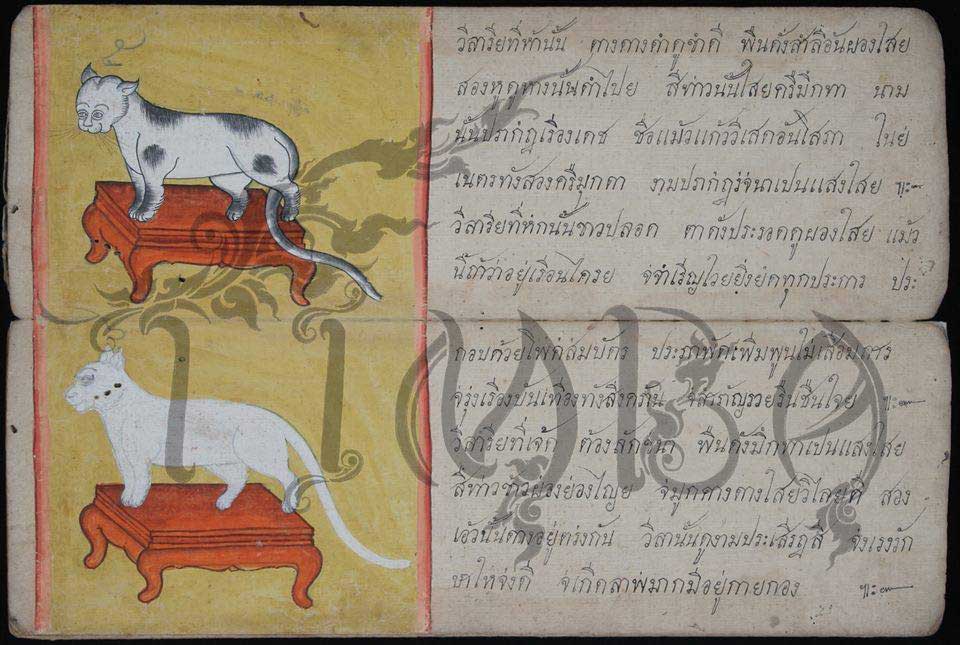 วิสาริยที่ห้านั้น คางดางดำดูขำคี พืนดั่งสำลีอันผองใสย
สองหูดูทางนั้นดำไปย สีห้าวนั้นใสยครืมึกทา นาม
นั้นปรากํฏเรืองเดช ชือแม้วแก้ววิเสดอันโสภา ในย่
เนตรทังสวงครืมูกดา งามปรากํฏรัจนาเปนแสงใสย ฯะ
วิสาริยที่หกนั้นขาวปลอด ตาดังประรอดดูผองใสย แม้ว
นี้ถ้าว่าอยู่เรือนไครย จำเรีญไวยยิ่งยดทุกประการ ประ
กอบด้วยโพคสมบัตร ประภาพัดเพิ่มพูนไม่เสื่อมการ
จรุ่งเรืองบันเทีองทัง
วิสาริยที่เจ้ด ต้องลักขนา พืนดังมึกทาเปนแสงใสย
จมูกดางคางใสยวิไลยดี สวง
เอวนั้นดางอยู่ตรงกัน วิลานั้นดูงามประเสรีฎสี จงเรงรัก
ษาให้จงดี จเกีดลาพมากมีอยู่กายกอง ฯะ